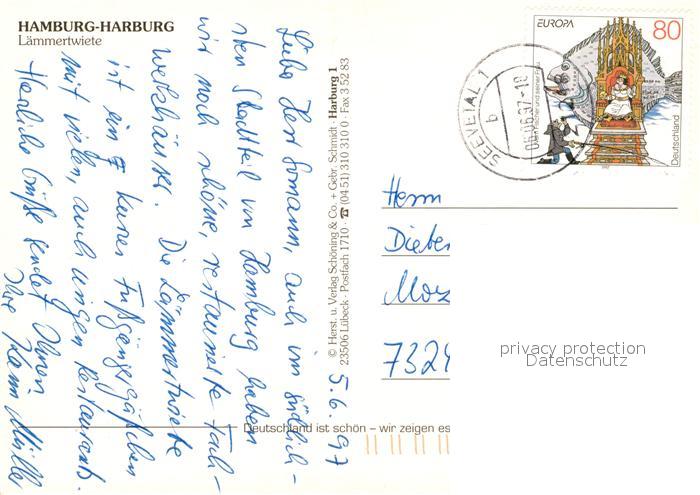 HAMBURG-HARBURG
Lämmertwiete
Liebe Herr Tomann, auch im südlich-
sten Stadtteil von Hamburg haben
wir noch schöne, restaurierte Fach-
werkhäuser. Die Lämmertwiete
ist ein kurzes Fußgängergäßchen
mit vielen, auch urigen Restaurants.
Herzliche Grüße sendet Ihnen
Ihre Hanni Müller
5.6.97
© Herst. u. Verlag Schöning & Co. + Gebr. Schmidt · Harburg 1
23506 Lübeck · Postfach 1710 · ☎ (04 51) 310 310 0 · Fax 3 52 83
EUROPA
80
Deutschland
SEEVETAL 1
b
06.06.97-18
Herrn
Dieter
Moz
7324
privacy protection
Datenschutz
Deutschland ist schön – wir zeigen es